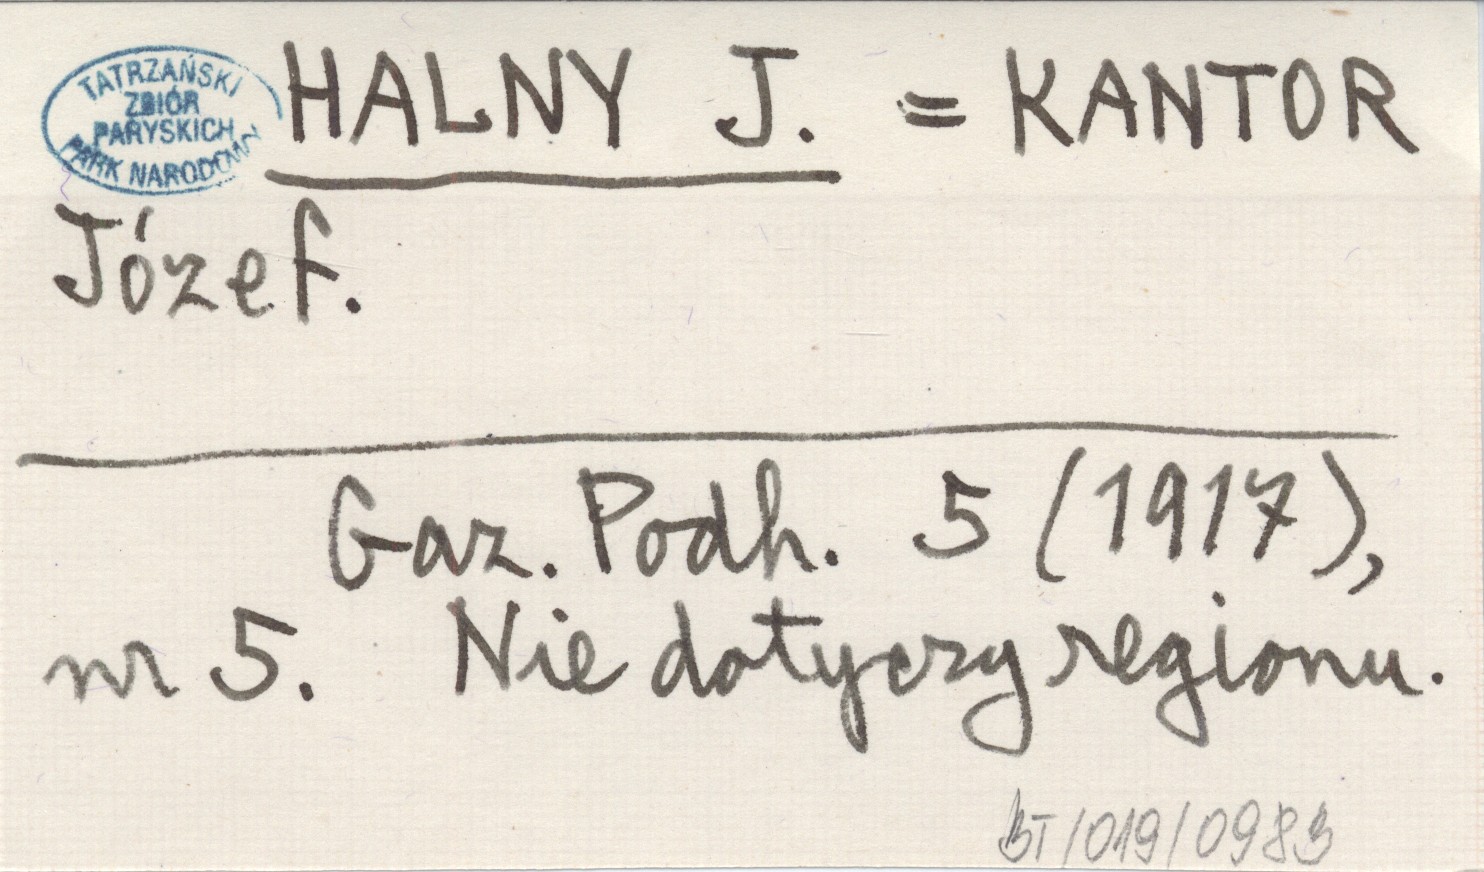 TATRZAŃSKI
ZBIÓR
PARYSKICH
PARK NARODOWY
HALNY J. = KANTOR
Józef.
Gaz. Podh. 5 (1917),
nr 5. Nie dotyczy regionu.
BT/019/0983